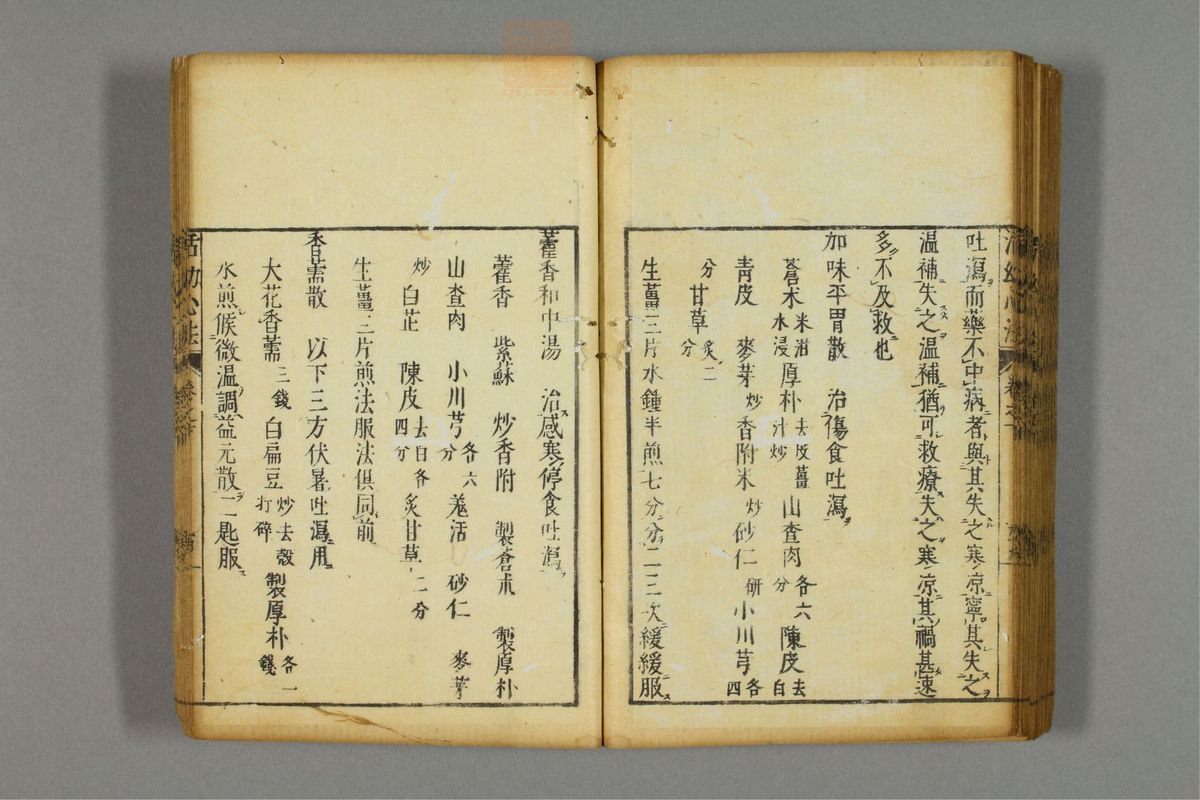 吐瀉而藥不中病者與其失之寒凉寧其失之
温補失之温補猶可救療失之寒凉其禍甚速
多不及救也
加味平胃散　治傷食吐瀉
蒼术米泔水浸　厚朴去皮薑汁炒　山查肉各六分　陳皮去白
青皮　麥芽炒　香附米炒　砂仁研　小川芎各四
分　甘草炙二分
生薑三片水鍾半煎七分分二三次緩緩服
藿香和中湯　治感寒停食吐瀉
藿香　紫蘇　炒香附　製蒼术　製厚朴
山查肉　小川芎各六分　羗活　砂仁　麥芽
炒　白芷　陳皮去白各四分　炙甘草二分
生薑三片煎法服法俱同前
香薷散　以下三方伏暑吐瀉用
大花香薷三錢　白扁豆炒去殼打碎　製厚朴各一錢
水煎候微温調益元散一二匙服
活幼心法